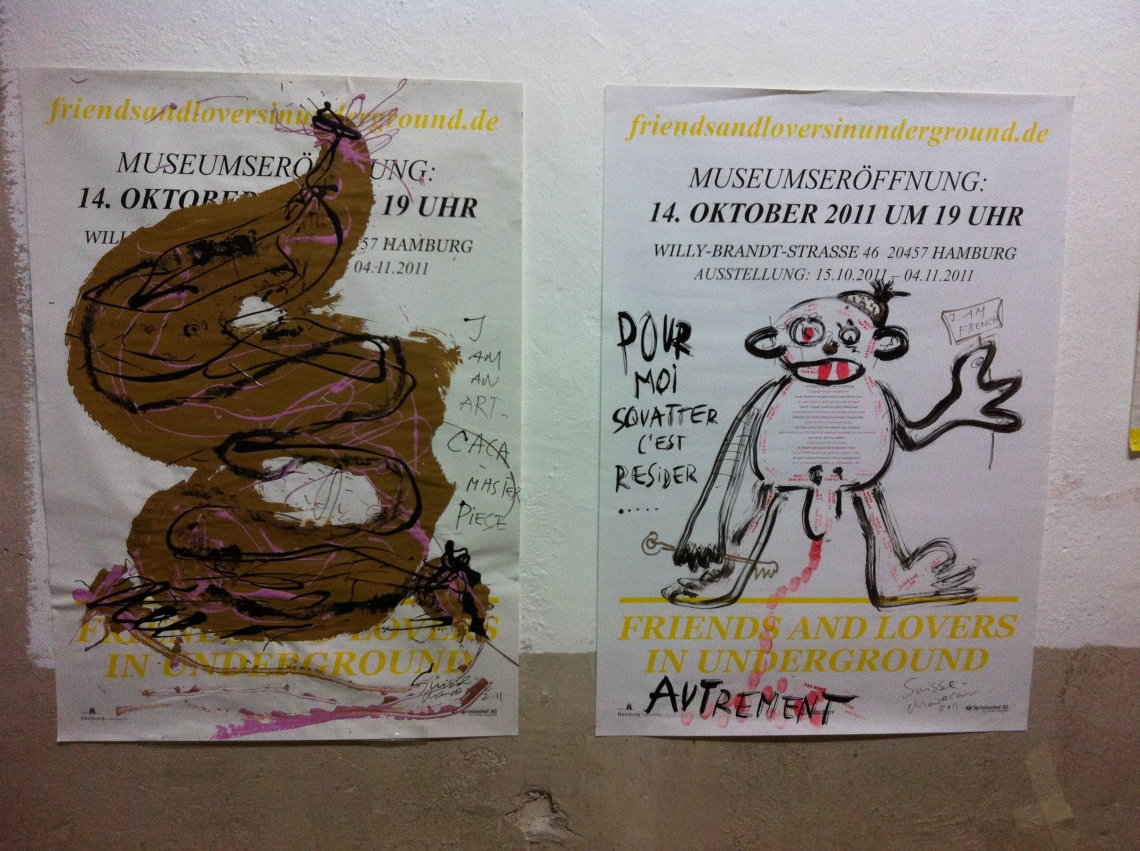 friendsandloversinunderground.de
MUSEUMSERÖ UNG:
14. OKTOBER 19 UHR
WILLY 57 HAMBURG
04.11.2011
I
AM
AN
ART-
CACA
-
MASTER
PIECE
FRIENDS LOVERS
IN UNDERGROUND
Suisse
Marocain
2011
Hamburg
Sprinkenhof AG
friendsandloversinunderground.de
MUSEUMSERÖFFNUNG:
14. OKTOBER 2011 UM 19 UHR
WILLY-BRANDT-STRASSE 46 20457 HAMBURG
AUSSTELLUNG: 15.10.2011 – 04.11.2011
POUR
MOI
SQUATTER
C'EST
RESIDER
.....
I AM
FRENCH
FRIENDS AND LOVERS
IN UNDERGROUND
AUTREMENT
Suisse-
Marocain
2011
Hamburg
Sprinkenhof AG